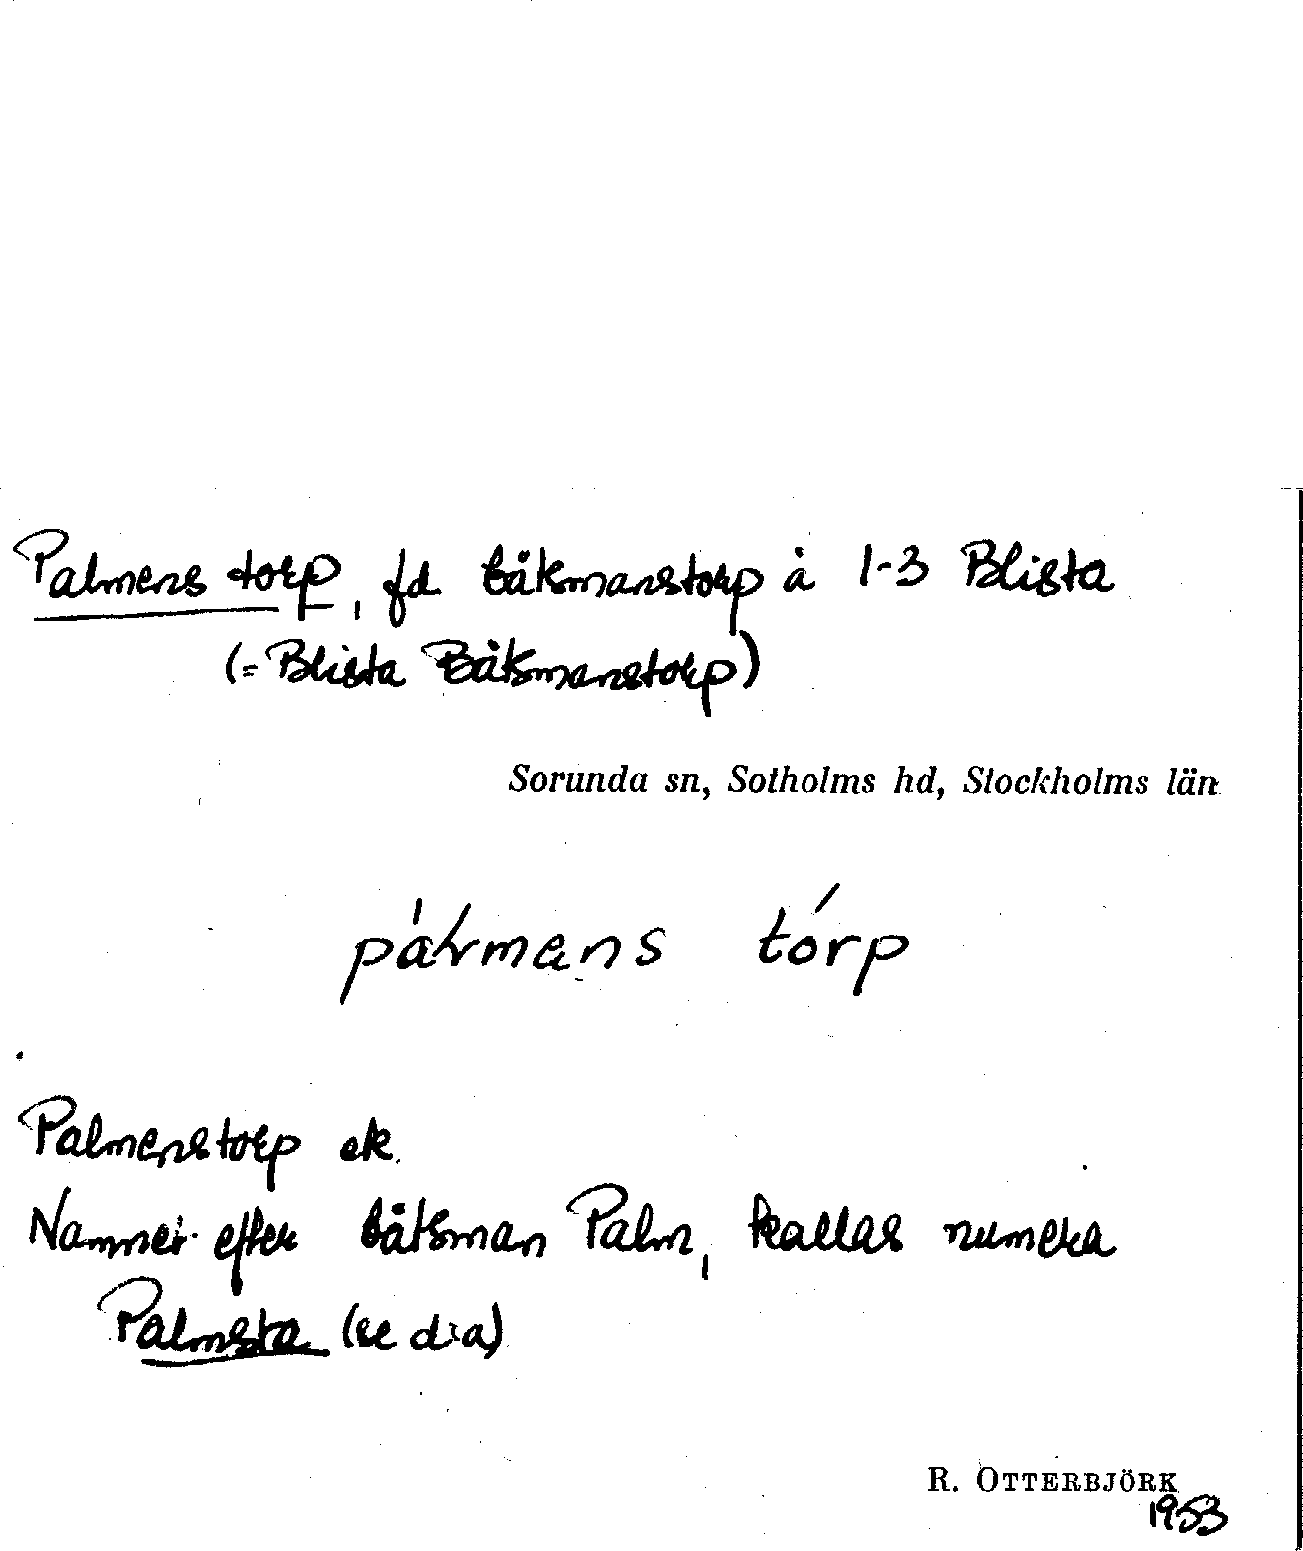 Palmens torp, fd båtsmanstorp å 1-3 Blista
(= Blista Båtsmanstorp)
Sorunda sn, Sotholms hd, Stockholms län
tórp
Palmenstorp ek.
Namnet efter båtsman Palm, kallas numera
Palmsta (se d:a)
R. OTTERBJÖRK
1953